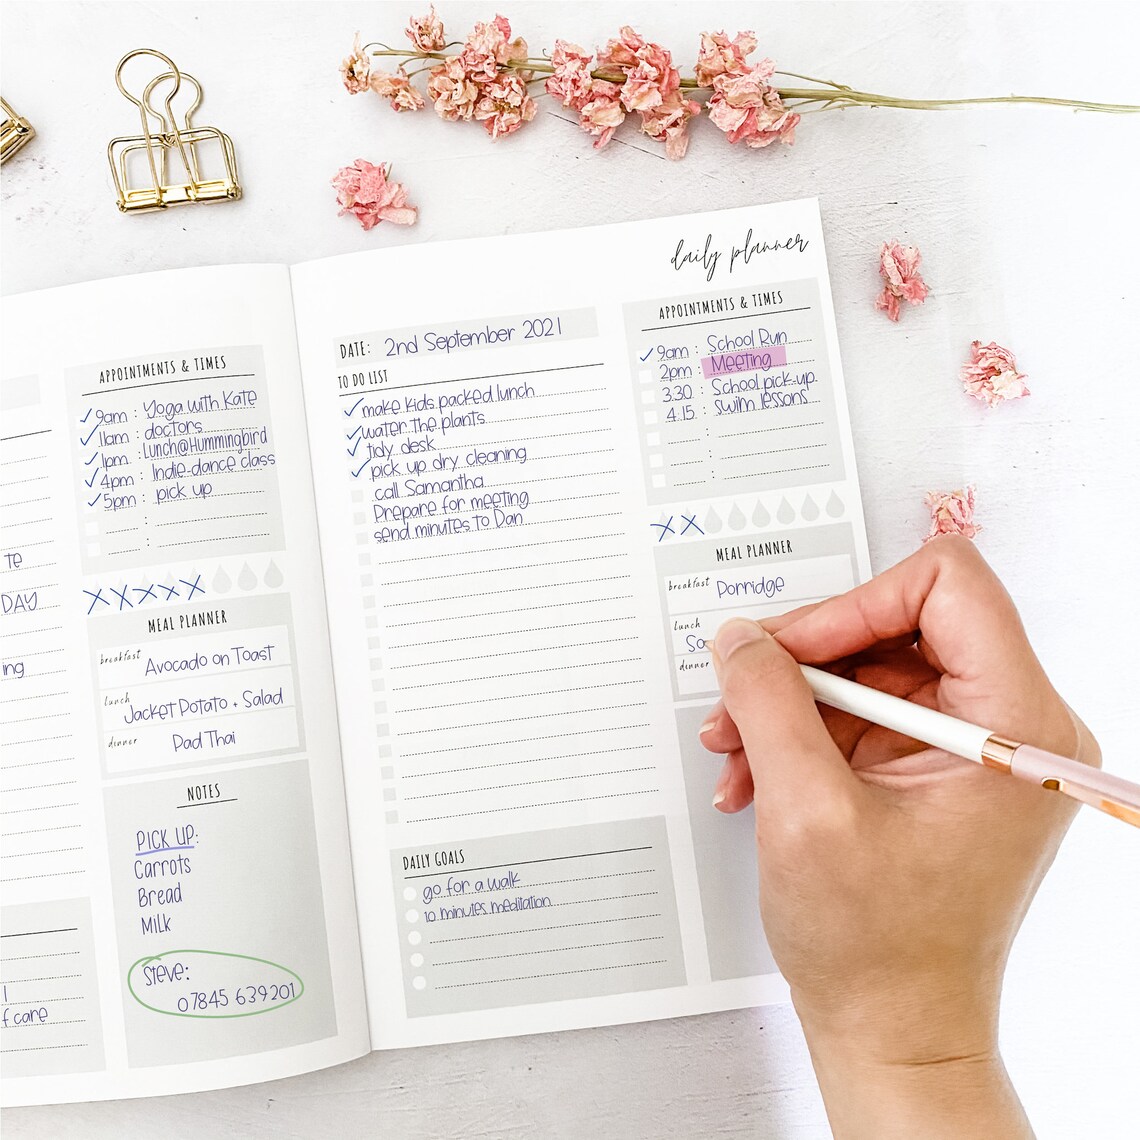 TE
DAY
ing
f care
APPOINTMENTS & TIMES
9am : Yoga with Kate
11am : doctors
1pm : Lunch@Hummingbird
4pm : Indie-dance class
5pm : pick up
:
:
MEAL PLANNER
breakfast Avocado on Toast
lunch Jacket Potato + Salad
dinner Pad Thai
NOTES
PICK UP:
Carrots
Bread
Milk
Steve:
07845 639201
daily planner
DATE: 2nd September 2021
TO DO LIST
make kids packed lunch
water the plants
tidy desk
pick up dry cleaning
call Samantha
Prepare for meeting
send minutes to Dan
DAILY GOALS
go for a walk
10 minutes meditation
APPOINTMENTS & TIMES
9am : School Run
2pm : Meeting
3.30 : School pick-up
4.15 : swim lessons
:
:
:
MEAL PLANNER
breakfast Porridge
lunch So
dinner